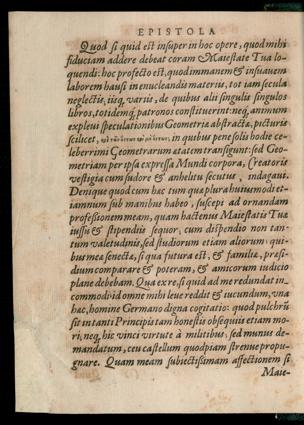 EPISTOLA
Quod si quid est insuper in hoc opere, quod mihi
fiduciam addere debeat coram Maiestate Tua lo-
quendi: hoc profecto est, quod immanem & insuavem
laborem hausi in enucleandis materiis, tot iam secula
neglectis, iisq; variis, de quibus alii singulis singulos
libros, totidemq; patronos constituerint: neq; animum
explevi speculationibus Geometriæ abstractæ, picturis
scilicet, in quibus pene solis hodie ce-
leberrimi Geometrarum ætatem transigunt: sed Geo-
metriam per ipsa expressa Mundi corpora, Creatoris
vestigia cum sudore & anhelitu secutus, indagavi.
Denique quod cum hæc tum que plura huiusmodi et-
iamnum sub manibus habeo, suscepi ad ornandam
professionem meam, quam hactenus Maiestatis Tuæ
iussu & stipendiis sequor, cum dispendio non tan-
tum valetudinis, sed studiorum etiam aliorum: qui-
bus mea senecta, si qua futura est, & familiæ, præsi-
dium comparare & poteram, & amicorum iudicio
plane debebam. Qua ex re, si quid ad me redundat in-
commodi id omne mihi leve reddit & iucundum, vna
hæc, homine Germano digna cogitatio: quod pulchrū
sit in tanti Principis tam honestis obsequiis etiam mo-
ri, neq; hic vinci virtute à militibus, sed munus de-
mandatum, ceu castellum quodpiam strenue propu-
gnare. Quam meam subiectissimam affectionem si
Maie-